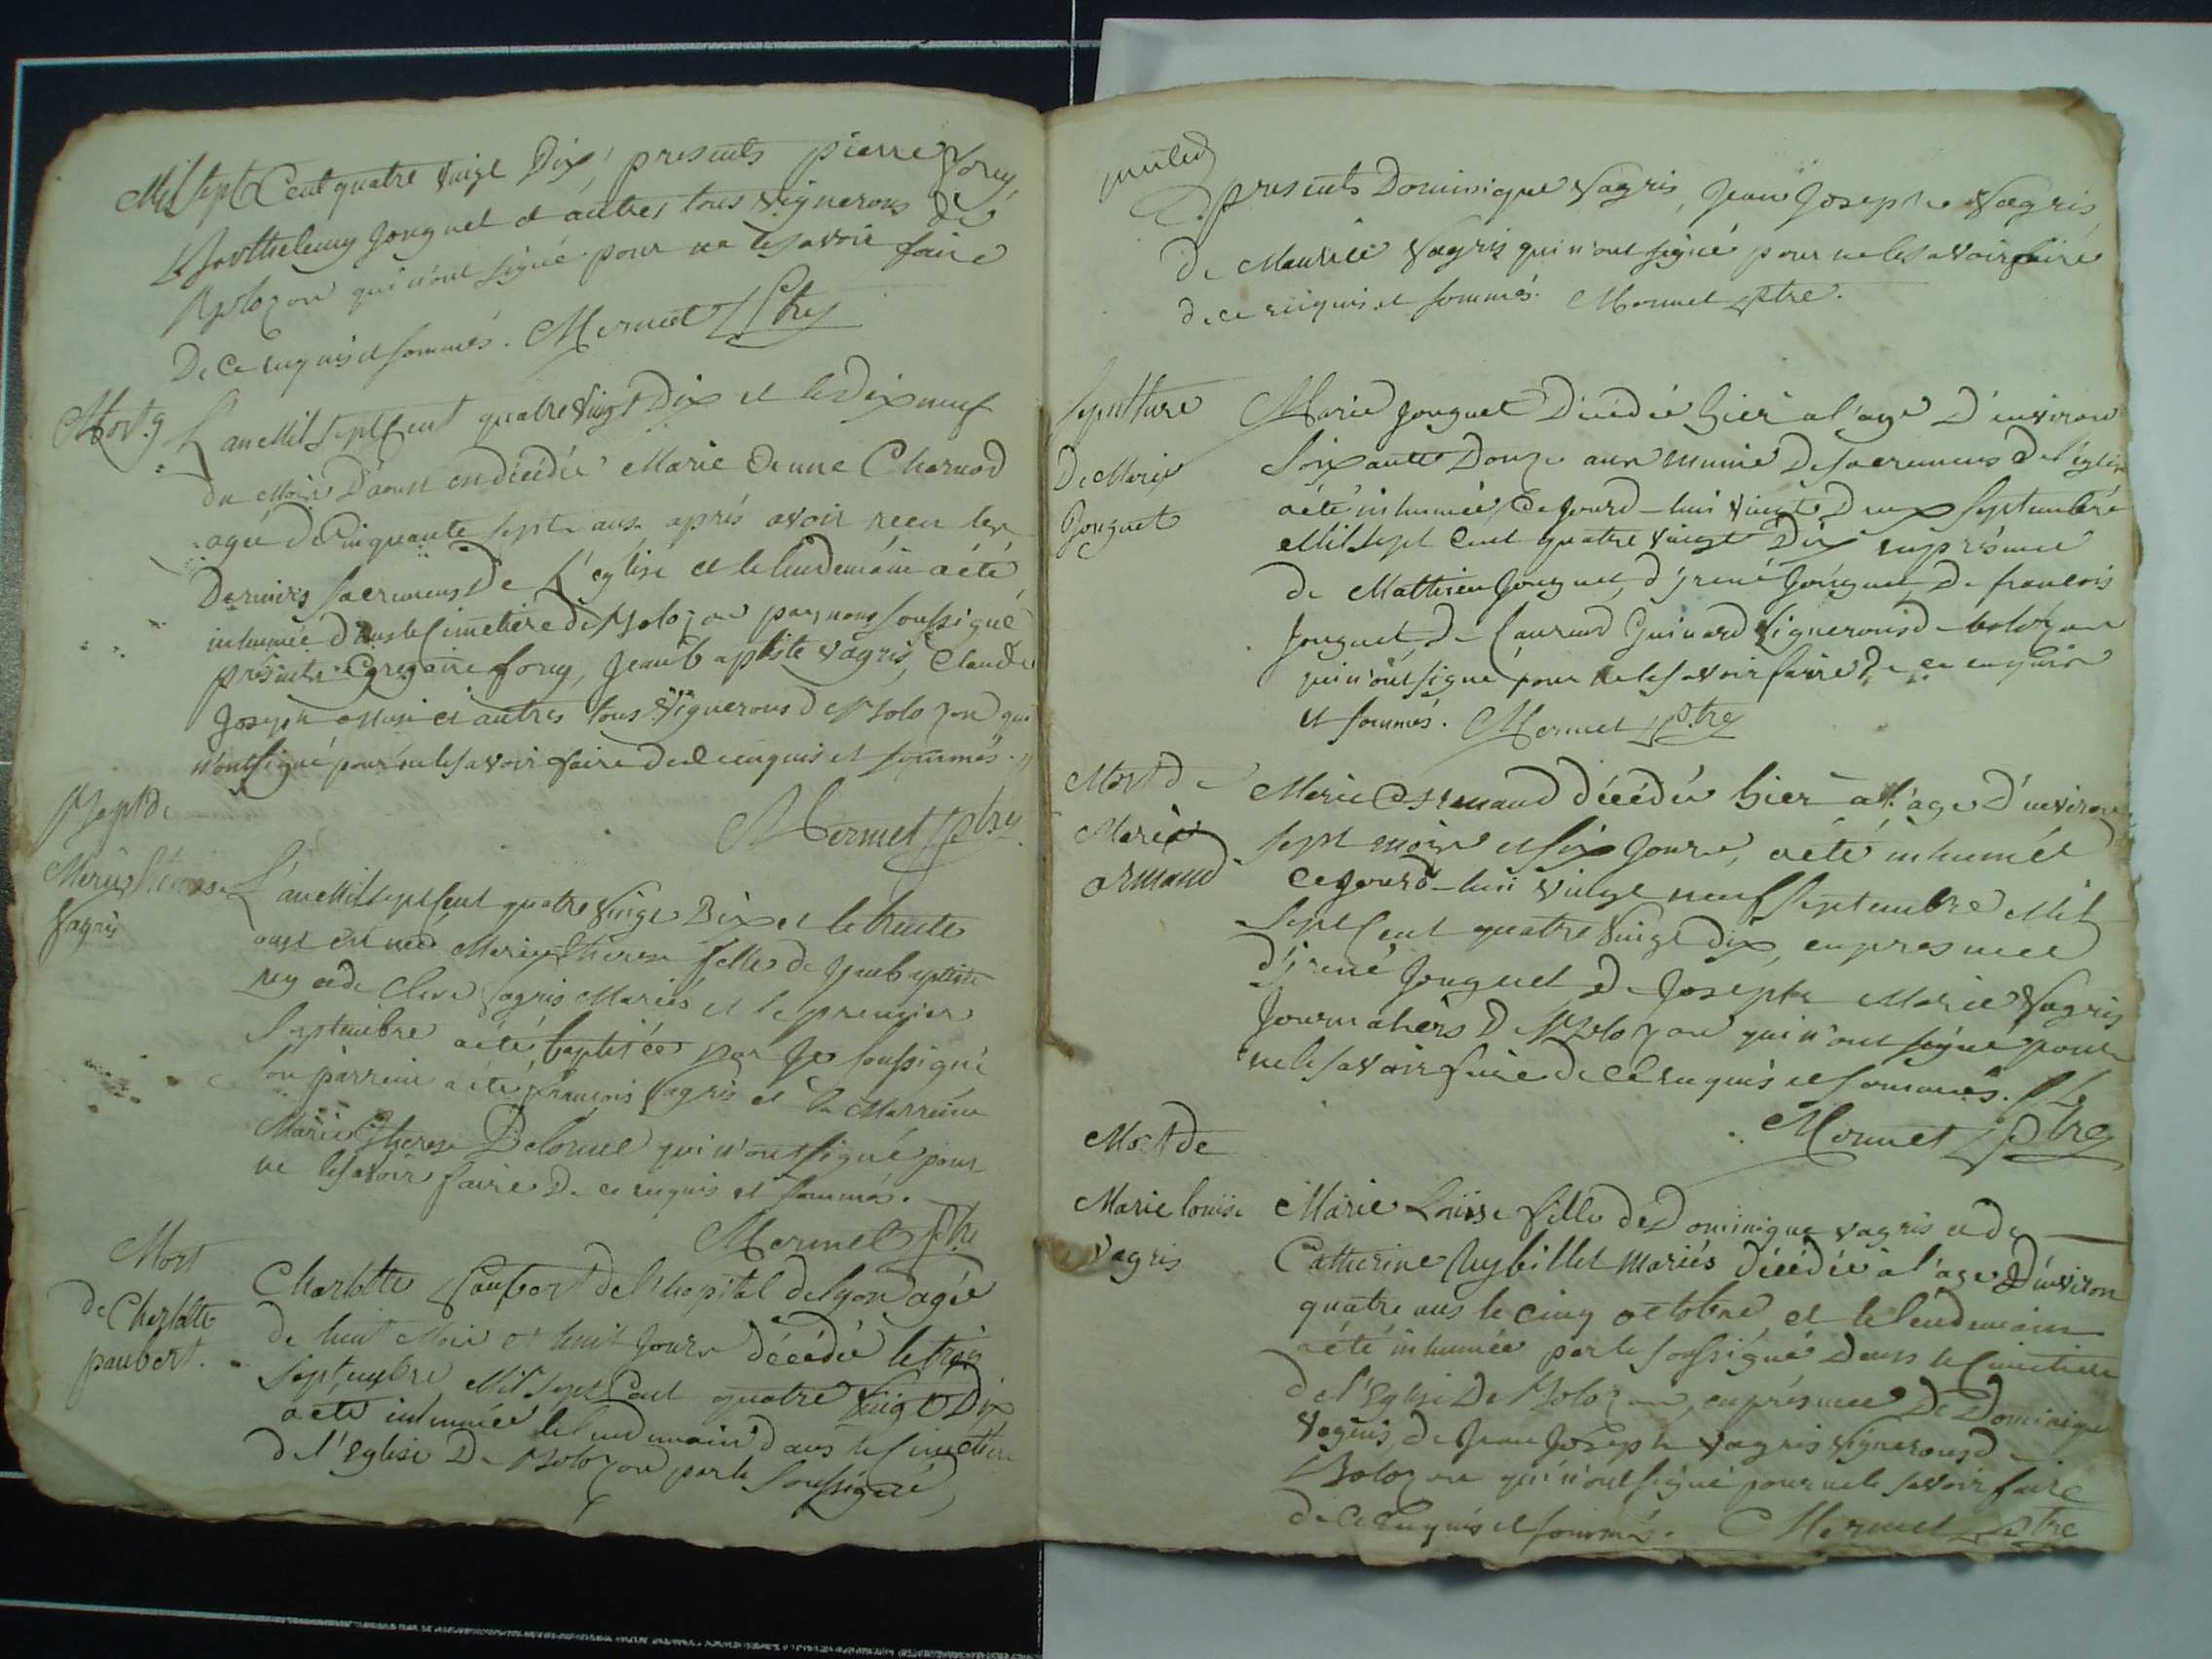 Mil Sept Cent quatre vingt Dix, presents pierre forey,
Barthelemy Jonguet et autres tous Vignerons de
Bolozon qui n'ont signé pour ne le savoir faire
De Ce enquis et sommés. Mermet Ptre
Mort
L'an Mil Sept Cent quatre Vingt Dix et le Dix neuf
du Mois D'aoust est décédée Marie Charnod
agée de Cinquante Sept ans après avoir reçu les
Derniers Sacremens De L'eglise et le lendemain a été
inhumée dans le Cimetière de Bolozon par nous soussigné
présents Gregoire forey, Jean baptiste vagris, Claude
Joseph et autres tous Vignerons de Bolozon qui
n'ont signé pour ne le savoir faire de Ce enquis et sommés.
Mermet Ptre
Bapt de
Marie Therese
Vagris
L'an Mil Sept Cent quatre Vingt Dix et le trente
aust est née Marie Therese fille de Jean baptiste
rey et de vagris Mariés et le premier
Septembre a été baptisée par Je soussigné
son parrein a été françois vagris et la Marreine
Marie Therese Delorme qui n'ont signé pour
ne le savoir faire De ce enquis et sommés.
Mermet Ptre
Mort
de Charlotte
paubert.
Charlotte paubert de l'hopital de lyon agée
de huit Mois et huit Jours décédée le trois
Septembre Mil Sept Cent quatre Vingt Dix
a été inhumée le lendemain dans le Cimetiere
de l'Eglise De Bolozon par le Soussigné,
presents Dominique Vagris, Jean Joseph Vagris,
De Maurice Vagris qui n'ont signé pour ne le savoir faire
de ce enquis et sommés. Mermet Ptre.
Sepulture
De Marie
Jonguet
Marie Jonguet Décédée hier a l'age D'environ
Soixante Douze ans munie De sacremens De l'église
a été inhumée Ce Jourd-hui vingt Deux Septembre
Mil Sept Cent quatre vingt Dix en présence
de Mathieu Jonguet, d'Jrené Jonguet, De francois
Jonguet, De Laurend Guinard Vignerons de bolozon
qui n'ont signé pour ne le savoir faire De ce enquis
et sommés. Mermet Ptre
Mort de
Marie
armand
Marie armand décédée hier a l'age D'environ
Sept mois et six Jours, a été inhumée
Ce Jourd-hui vingt neuf Septembre Mil
Sept Cent quatre Vingt dix, en presence
d'Jrené Jonguet De Joseph Marie Vagris
Journaliers De Bolozon qui n'ont signé pour
ne le savoir faire de Ce enquis et sommés.
Mermet Ptre
Mort de
Marie louise
Vagris
Marie Louise fille de Dominique vagris et de
Catherine Mariés décédée a l'age D'environ
quatre ans le cinq octobre et le lendemain
a été inhumée par le soussigné Dans le Cimetiere
de l'Eglise De Bolozon, en présence De Dominique
Vagris, de Jean Joseph vagris Vignerons de
Bolozon qui n'ont signé pour ne le savoir faire
de Ce enquis et sommés. Mermet Ptre